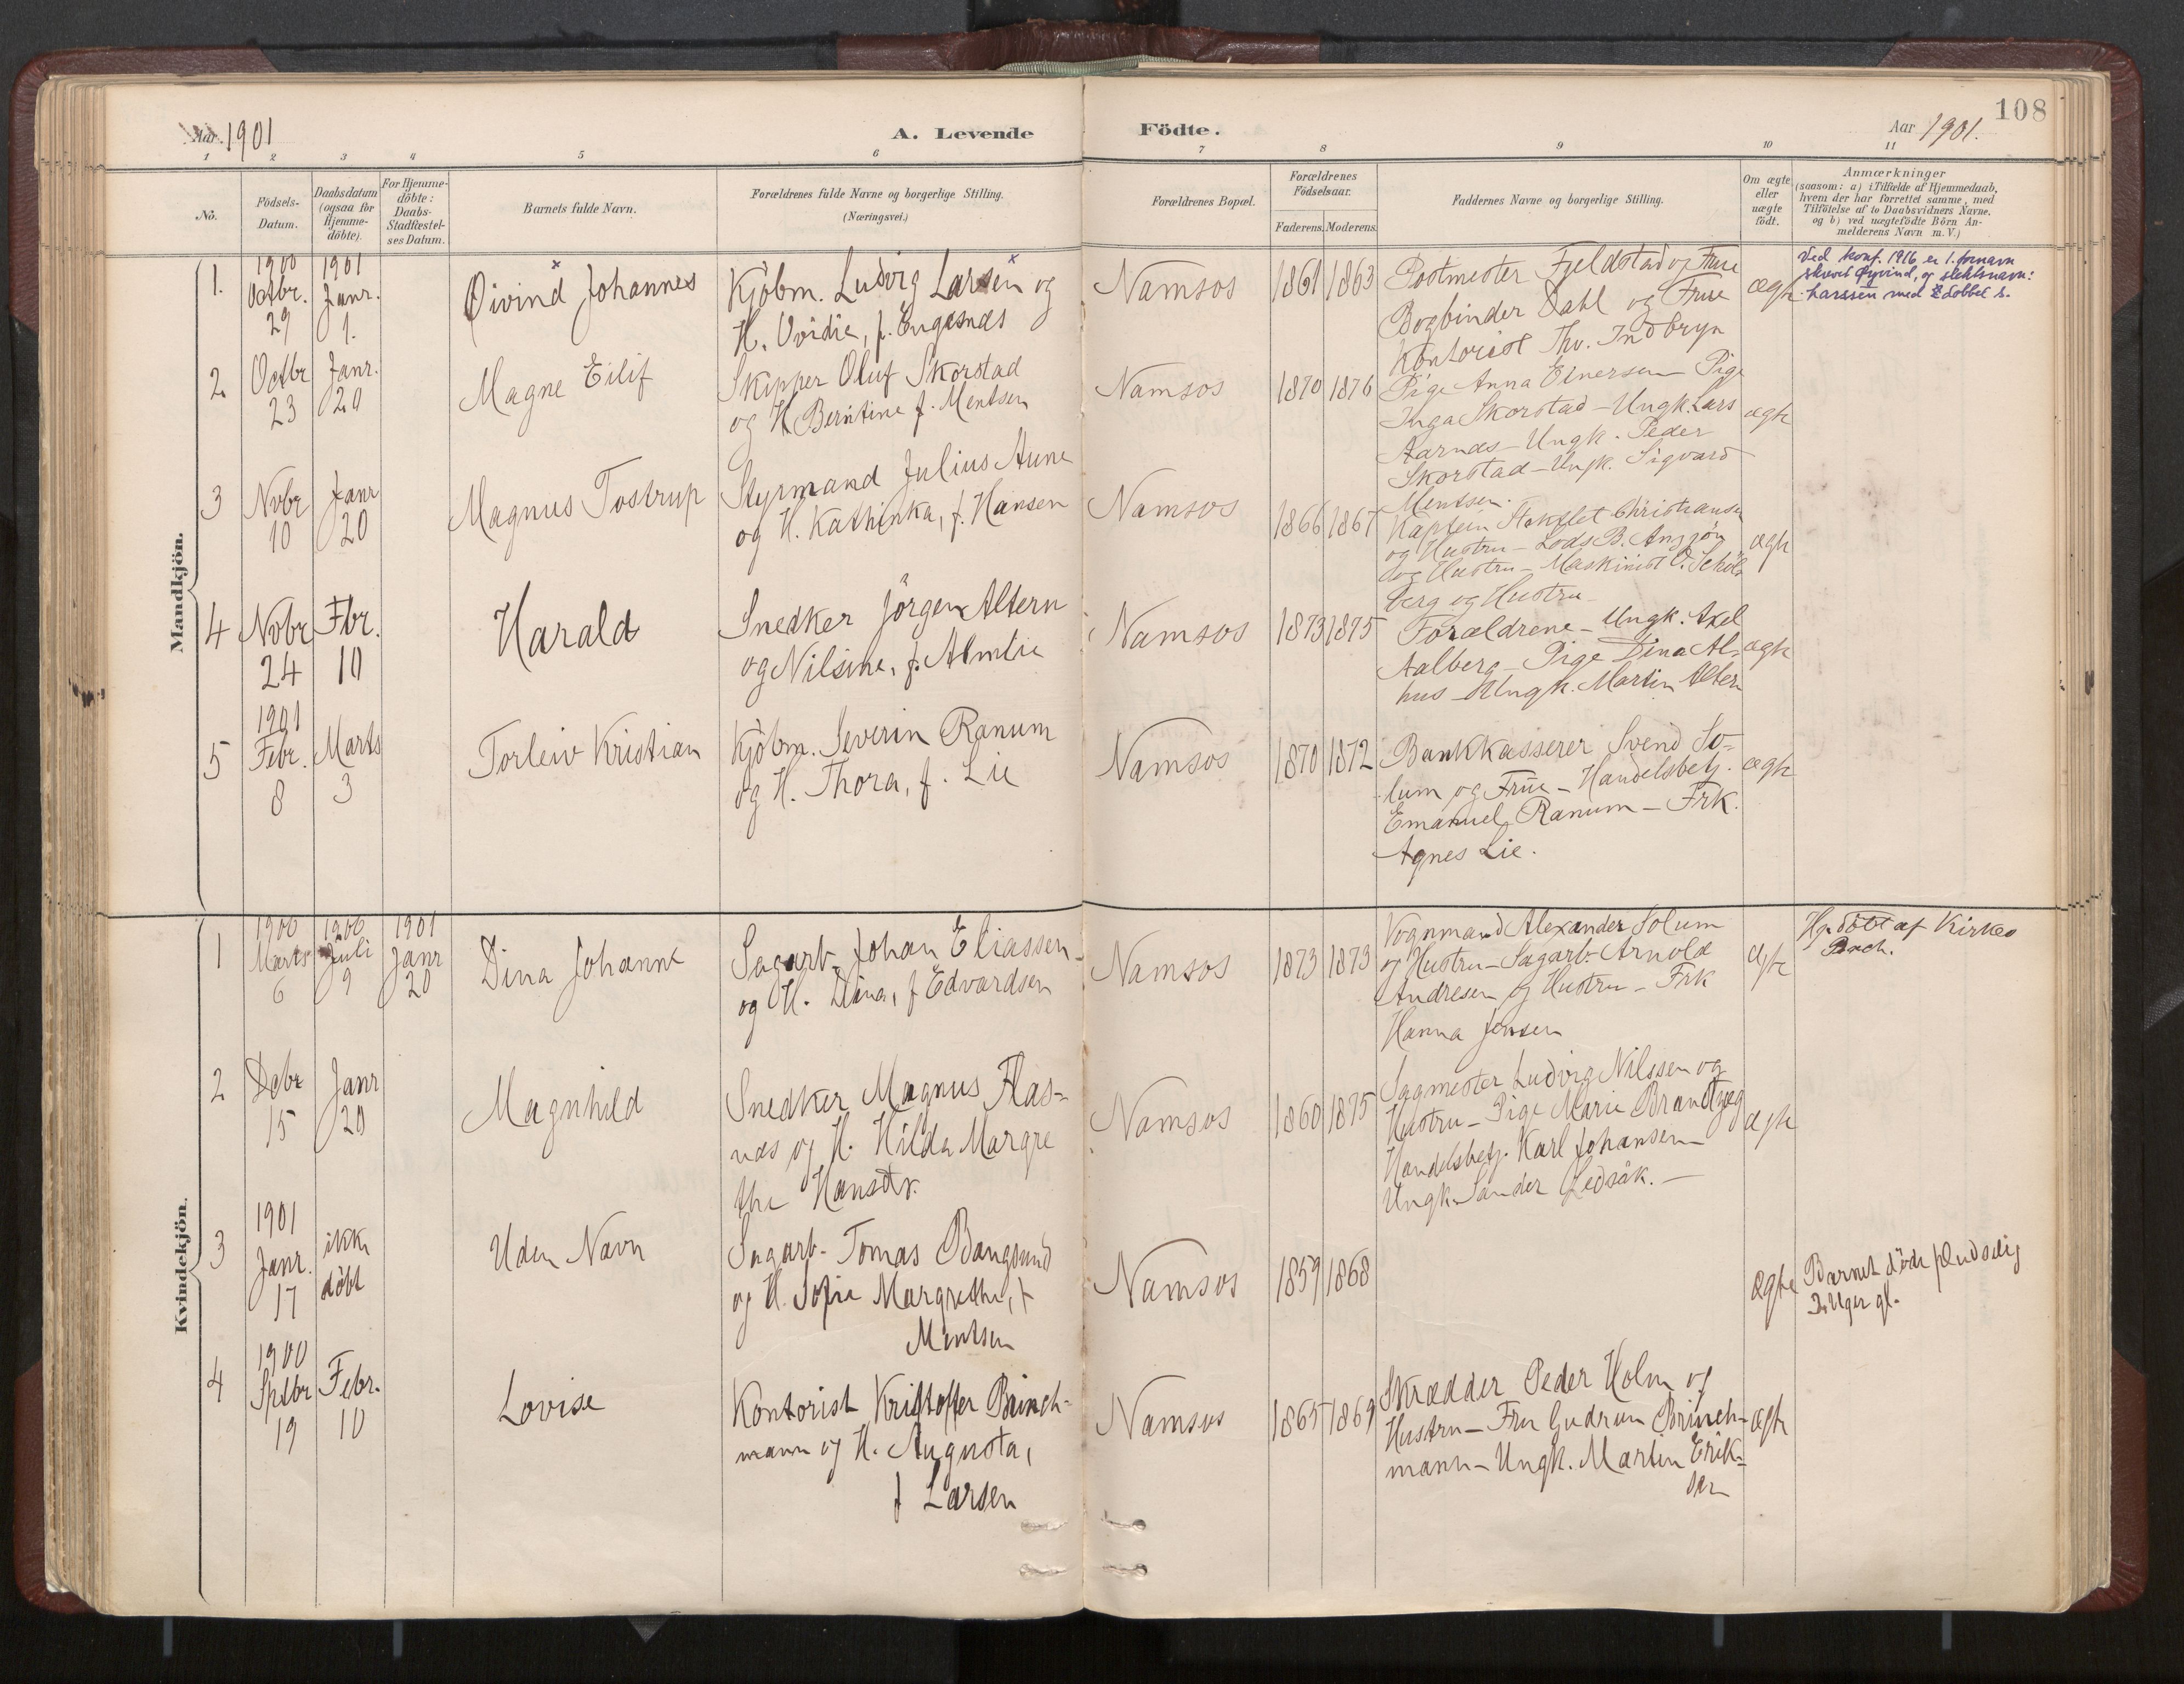 Aar 1901
A. Levende Födte.
Aar 1901.
108
1 2 3 4 5 6 7 8 9 10 11
No.
Födsels-Datum.
Daabsdatum (ogsaa for Hjemme-döbte).
For Hjemme-döbte: Daabs-Stadfæstel-ses Datum.
Barnets fulde Navn.
Forældrenes fulde Navne og borgerlige Stilling.
(Næringsvei.)
Forældrenes Bopæl.
Forældrenes Födselsaar.
Faderens. Moderens.
Faddernes Navne og borgerlige Stilling.
Om ægte eller uægte født.
Anmærkninger
(saasom: a) i Tilfælde af Hjemmedaab,
hvem der har forrettet samme, med
Tilföielse af to Daabsvidners Navne,
og b) ved uægtefödte Börn An-
melderens Navn m. V.)
Mandkjön.
1. 1900 Octbr. 29
1901 Janr. 1.
Øivind Johannes
Kjöbm. Ludvig Larsen og
H. Ovidie, f. Engesnæs
Namsos
1861 1863
Postmester Fjeldstad og Frue
Bogbinder Dahl og Frue
Kontorist Thv. Indbryn
ægte
Ved konf. 1916 er 1. fornavn
skrevet Øyvind, og slektsnavn:
Larssen med dobbel s.
2 Octbr 23
Janr. 20
Magne Eilif
Skipper Oluf Skorstad
og H. Berntine f. Mentsen
Namsos
1870 1876
Pige Anna Einersen Pige
Inga Skorstad - Ungk. Lars
Aarnæs - Ungk. Peder
Skorstad - Ungk. Sigvard
Mentsen.
ægte
3 Novbr 10
Janr 20
Magnus Tostrup
Styrmand Julius Aune
og H. Kathinka, f. Hansen
Namsos
1866 1867
Kaptein Stokflet Christiansen
og Hustru - Lods B. Angjön
og Hustru - Maskinist O. Schöls
berg og Hustru
ægte
4 Novbr 24
Fbr. 10
Harald
Snedker Jörgen Altern
og Nilsine, f. Almlie
Namsos
1873 1875
Forældrene - Ungk. Axel
Aalberg - Pige Dina Al-
hus - Ungk. Martin Altern
ægte
5 1901 Febr. 8
Marts 3
Torleiv Kristian
Kjöbm. Severin Ranum
og H. Thora, f. Lie
Namsos
1870 1872
Bankkasserer Svend So-
lum og Frue - Handelsbetj.
Emanuel Ranum - Frk.
Agnes Lie.
ægte
Kvindekjön.
1 1900 Marts 6
1900 Juli 9
1901 Janr 20
Dina Johanne
Sagarb. Johan Eliassen
og H. Dina, f Edvardsen
Namsos
1873 1873
Vognmand Alexander Solum
og Hustru - Sagarb. Arnold
Andresen og Hustru - Frk
Hanna Jensen
ægte
Hj. döbt af Kirkes
Bach.
2 Debr 15
Janr 20
Magnhild
Snedker Magnus Flas-
næs og H. Hilda Margre
the Hansdtr.
Namsos
1860 1875
Sagmester Ludvig Nilssen og
Hustru - Pige Marie Brandtzæg
Handelsbetj. Karl Johansen
Ungk. Sander Ledsåk. -
ægte
3 1901 Janr. 17
ikke döbt
Uden Navn
Sagarb. Tomas Bangsund
og H. Sofie Margrethe, f
Mentsen
Namsos
1859 1868
Ægte
Barnet döde pludselig
2 Uger gl.
4 1900 Sptbr 19
Febr. 10
Lovise
Kontorist Kristoffer Brinch-
mann og H. Augusta,
f Larsen
Namsos
1865 1869
Skrædder Peder Holm og
Hustru - Fru Gudrun Brinch-
mann - Ungk. Martin Erik-
sen
ægte